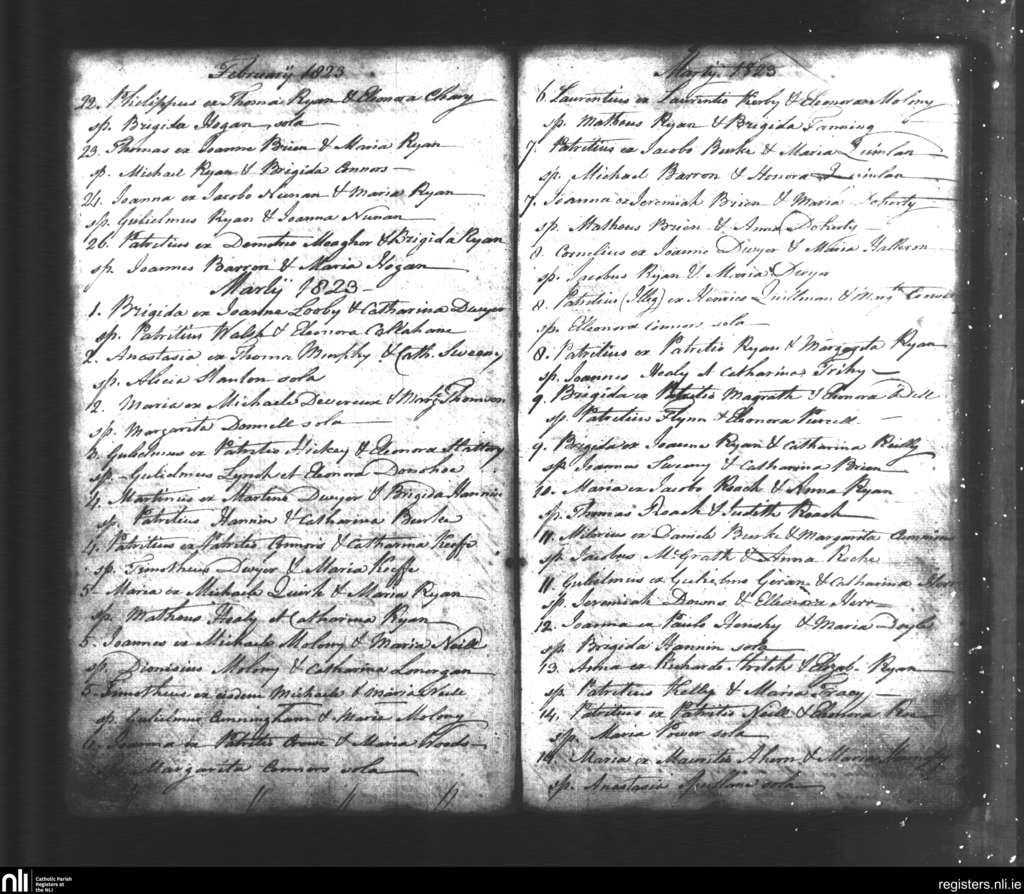 February 1823
22. Philippus ex Thoma Ryan & Eleonora Cleary
sp. Brigida Hogan sola
23. Thomas ex Joanne Brien & Maria Ryan
sp. Michael Ryan & Brigida Connors
24. Joanna ex Jacobo Nunan & Maria Ryan
sp. Gulielmus Ryan & Joanna Nunan
26. Patritius ex Demetrio Meagher & Brigida Ryan
sp. Joannes Barron & Maria Hogan
Martij 1823
1. Brigida ex Joanne Looby & Catharina Dwyer
sp. Patritius Walsh & Eleonora Callahane
2. Anastasia ex Thoma Murphy & Cath. Sweeny
sp. Alicia Stanton sola
2. Maria ex Michaele Devereux & Margt Thomson
sp. Margarita Donnell sola
3. Gulielmus ex Patritio Hickey & Eleonora Slattery
sp. Gulielmus Lynch et Eleonora Donohoe
4. Martinus ex Martino Dwyer & Brigida Hannin
sp. Patritius Hannin & Catharina Burke
4. Patritius ex Patritio Connors & Catharina Keeffe
sp. Timotheus Dwyer & Maria Keeffe
5. Maria ex Michaele Quirk & Maria Ryan
sp. Matheus Healy et Catharina Ryan
5. Joannes ex Michaele Molony & Maria Neill
sp. Dionisius Molony & Catharina Lonorgan
5. Timotheus ex eisdem Michaele & Maria Neill
sp. Gulielmus Cunningham & Maria Molony
6. Joanna ex Patritio Crowe & Maria Woods
Margarita Connors sola
Martij 1823
6. Laurentius ex Laurentio Kerby & Eleonora Molony
sp. Matheus Ryan & Brigida Fanning
7. Patritius ex Jacobo Burke & Maria Quinlan
sp. Michael Barron & Honora Quinlan
7. Joanna ex Jeremiah Brien & Maria Doherty
sp. Matheus Brien & Anna Doherty
8. Cornelius ex Joanne Dwyer & Maria Halloran
sp. Jacobus Ryan & Maria Dwyer
8. Patritius (Illeg) ex Henrico & Margta
sp. Eleonora Connors sola
8. Patritius ex Patritio Ryan & Margarita Ryan
sp. Joannes Healy et Catharina
9. Brigida ex Patritio Magrath & Eleonora
sp. Patritius Flynn & Eleonora Purcell
9. Brigida ex Joanne Ryan & Catharina Reilly
sp. Joannes Sweeny & Catharina Brien
10. Maria ex Jacobo Roach & Anna Ryan
sp. Thomas Roach & Judith Roach
11. ex Daniele Burke & Margarita
sp. Jacobus McGrath & Anna Roche
11. Gulielmus ex Gulielmo Geran & Catharina
sp. Jeremiah Downs & Eleonora
12. Joanna ex Paulo & Maria Doyle
sp. Brigida Hannin sola
13. Anna ex Richardo & Elizab. Ryan
sp. Patritius Kelly & Maria Tracy
14. Patritius ex Patritio Neill & Eleonora
sp. Maria Power sola
14. Maria ex Mauritio Ahern & Maria
sp. Anastasia Spillane sola
nli
Catholic Parish
Registers at
the NLI
registers.nli.ie